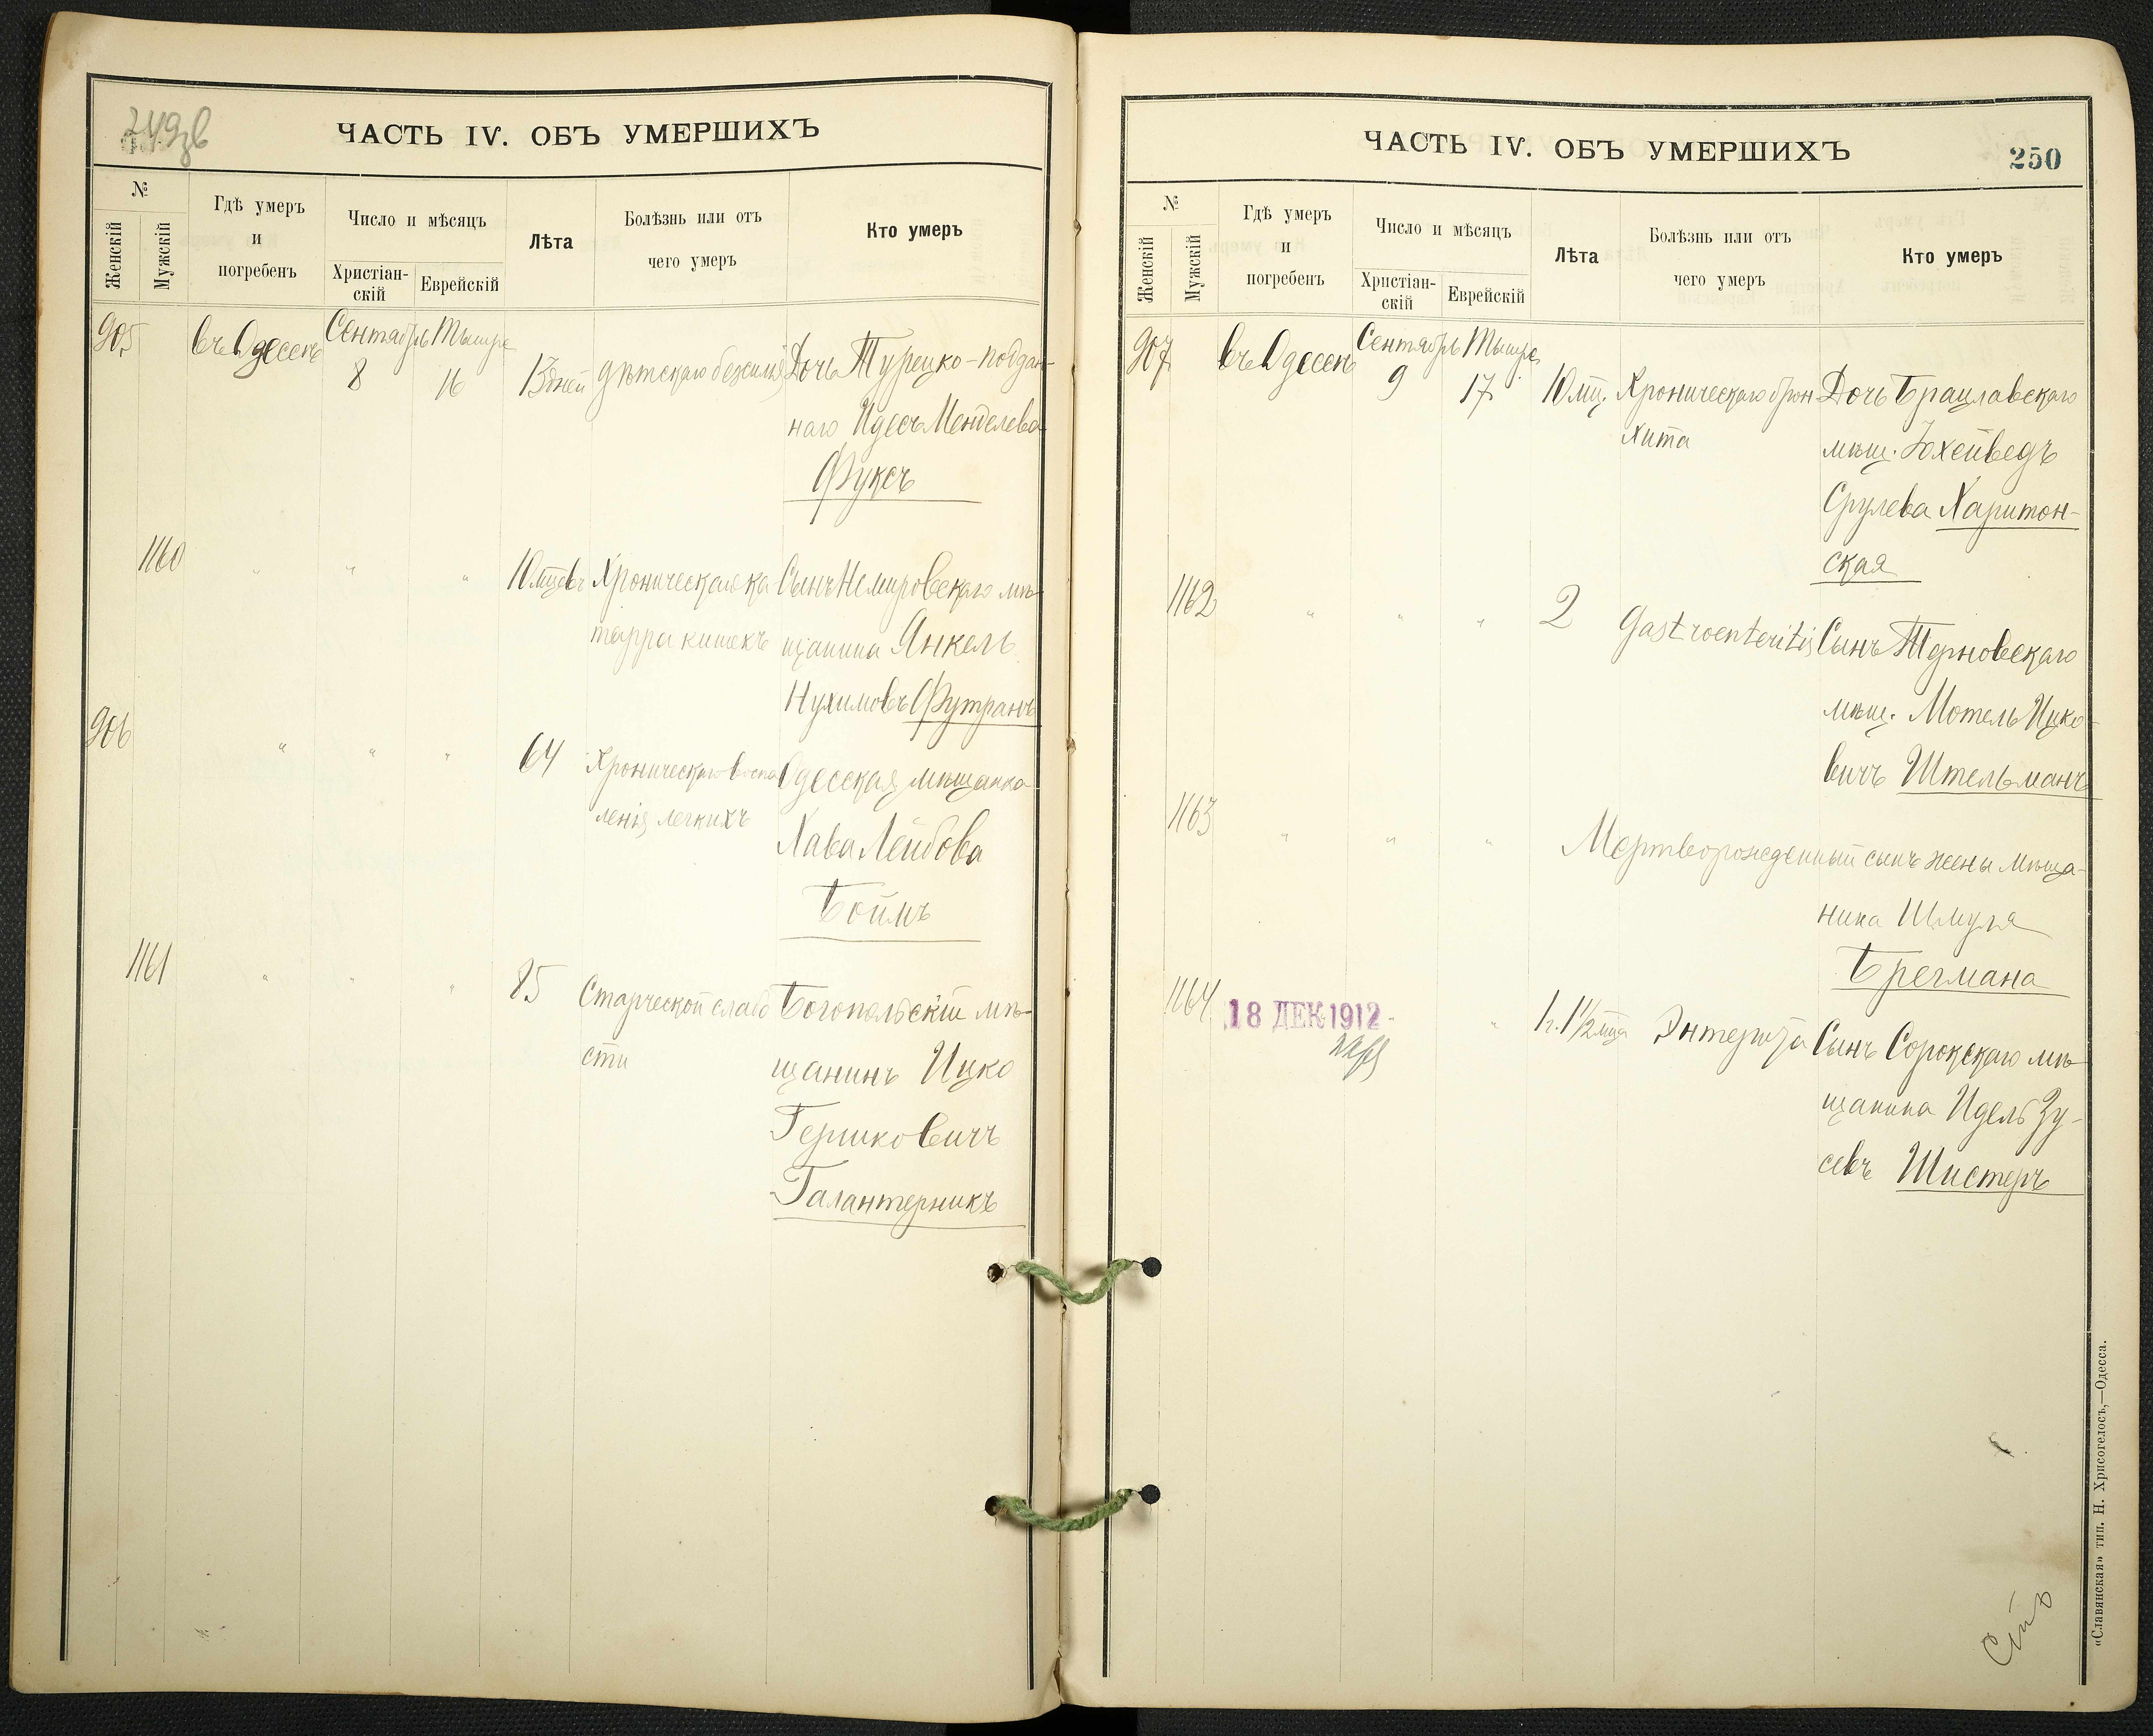 249об
ЧАСТЬ IV. ОБЪ УМЕРШИХЪ
№
Женскій
Мужскій
Гдѣ умеръ
и
погребенъ
Число и мѣсяцъ
Христіан-
скій
Еврейскій
Лѣта
Болѣзнь или отъ
чего умеръ
Кто умеръ
905 въ Одессѣ Сентябрь Тишре
8 16 13 дней дѣтскаго безсилія Дочь Турецко-поддан-
наго Идесъ Менделева
Фуксъ
1160 " " " 10 мцевъ Хроническая ка Сынъ Немировскаго мѣ-
тарра кишекъ щанина Янкель
Нухимовъ Футранъ
906 " " " 64 Хроническаго воспа Одесская мѣщанка
ленія легкихъ Хава Лейбова
Боймъ
1161 " " " 85 Старческой слабо Богопольскій мѣ-
сти щанинъ Ицко
Гершковичъ
Галантерникъ
ЧАСТЬ IV. ОБЪ УМЕРШИХЪ
250
№
Женскій
Мужскій
Гдѣ умеръ
и
погребенъ
Число и мѣсяцъ
Христіан-
скій
Еврейскій
Лѣта
Болѣзнь или отъ
чего умеръ
Кто умеръ
907 въ Одессѣ Сентябрь Тишре
9 17 10 мц. Хроническаго брон Дочь Брацлавскаго
хита мѣщ. Іохейведъ
Срулева Харитон-
ская
1162 " " " 2 Gastroenteritis Сынъ Терновскаго
мѣщ. Мотель Ицко-
вичъ Штельманъ
1163 " " " Мертворожденный сынъ жены мѣща-
нина Шмуля
Брегмана
1164 18 ДЕК 1912 " 1 г. 1½ мца Энтерита Сынъ Сорокскаго мѣ-
щанина Идель Зу-
севъ Шистеръ
«Славянская» тип. Н. Хрисогелосъ,—Одесса.